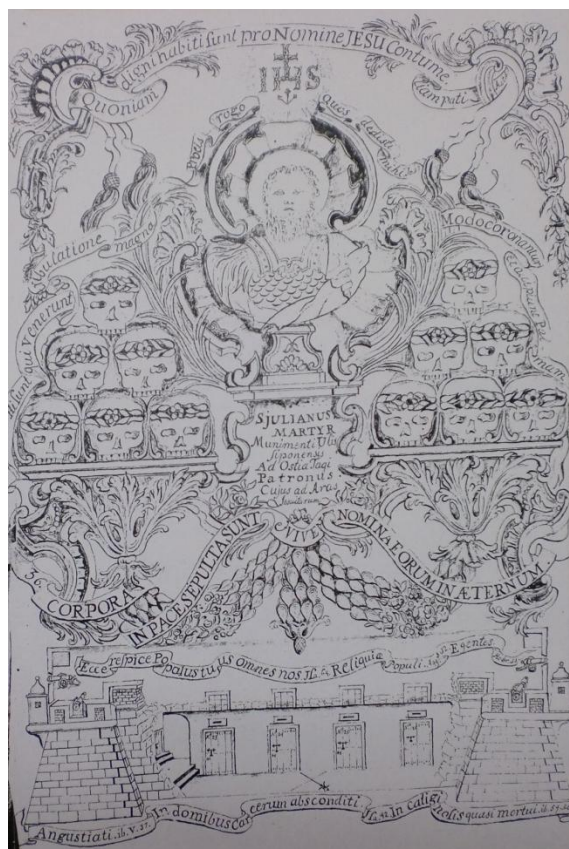 Quoniam digni habiti sunt pro Nomine JESU Contume liam pati
IHS
rogo quos dedisti
tribulatione magna
sunt qui venerunt
Modo coronantur
Et accipiunt
SJULIANUS
MARTYR
Munimenti Ulis
siponensis
Ad Ostia Tagi
Patronus
Cujus ad Aras
CORPORA IN PACE SEPULTA SUNT
VIVENT
NOMINA EORUM IN ÆTERNUM
Ecce respice Populus tuus omnes nos Reliquiæ Populi Egentes
Angustiati. ib. V. 37. In domibus Car cerum absconditi In Caligi
alis quasi mortui